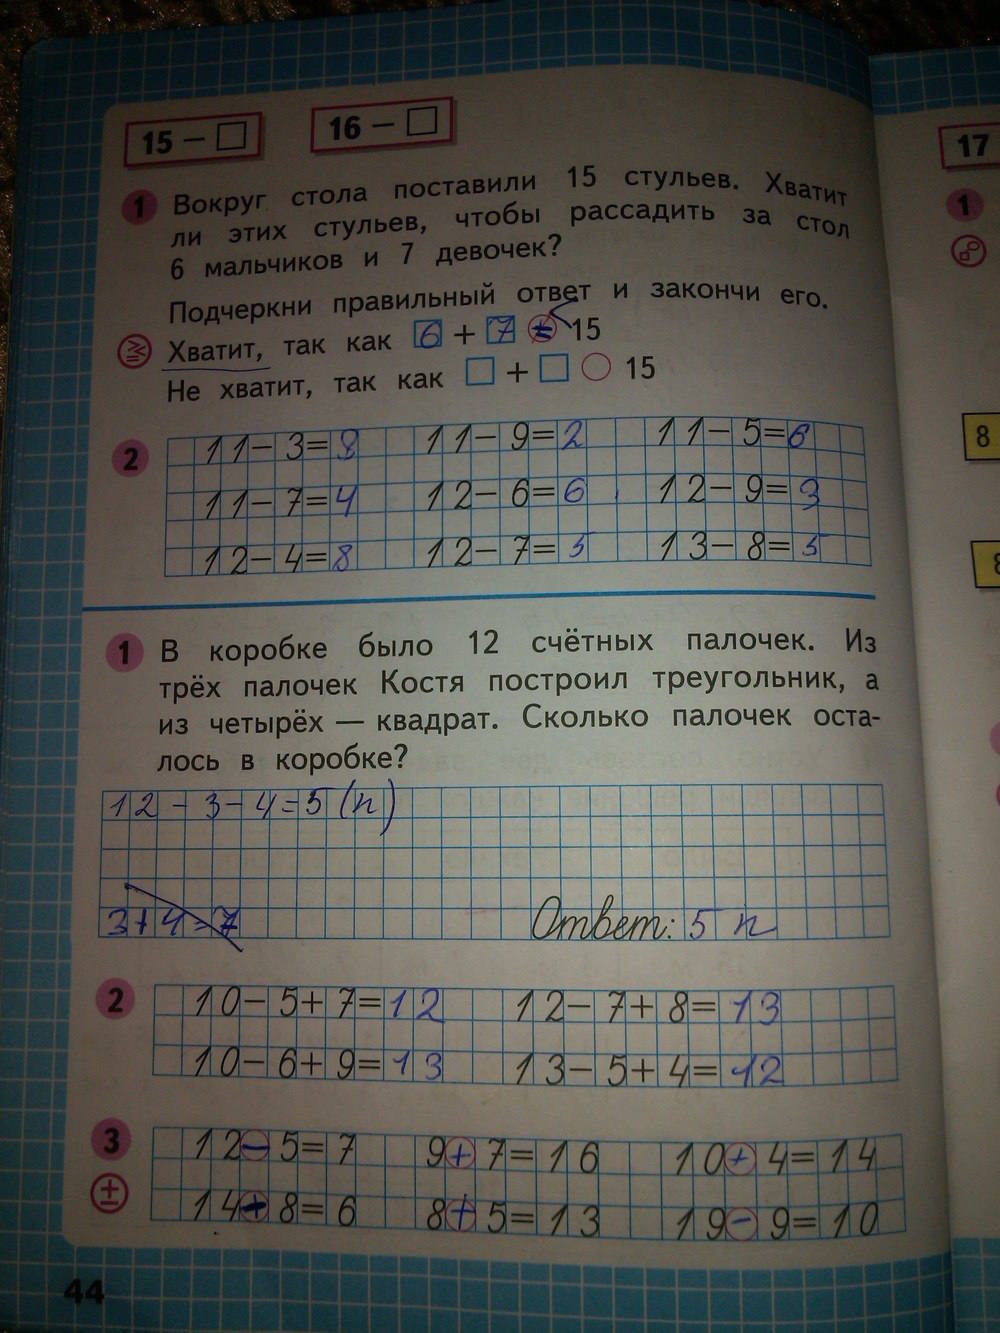 15 − □ 16 − □ 17
1 Вокруг стола поставили 15 стульев. Хватит
ли этих стульев, чтобы рассадить за стол
6 мальчиков и 7 девочек?
Подчеркни правильный ответ и закончи его.
Хватит, так как 6 + 7 < 15
Не хватит, так как □ + □ ○ 15
1
2
11−3=8 11−9=2 11−5=6
11−7=4 12−6=6 12−9=3
12−4=8 12−7=5 13−8=5
8
8
1 В коробке было 12 счётных палочек. Из
трёх палочек Костя построил треугольник, а
из четырёх — квадрат. Сколько палочек оста-
лось в коробке?
12−3−4=5 (п)
3+4=7 Ответ: 5 п
2 10−5+7=12 12−7+8=13
10−6+9=13 13−5+4=12
3 12−5=7 9+7=16 10+4=14
± 14 8=6 8+5=13 19−9=10
44